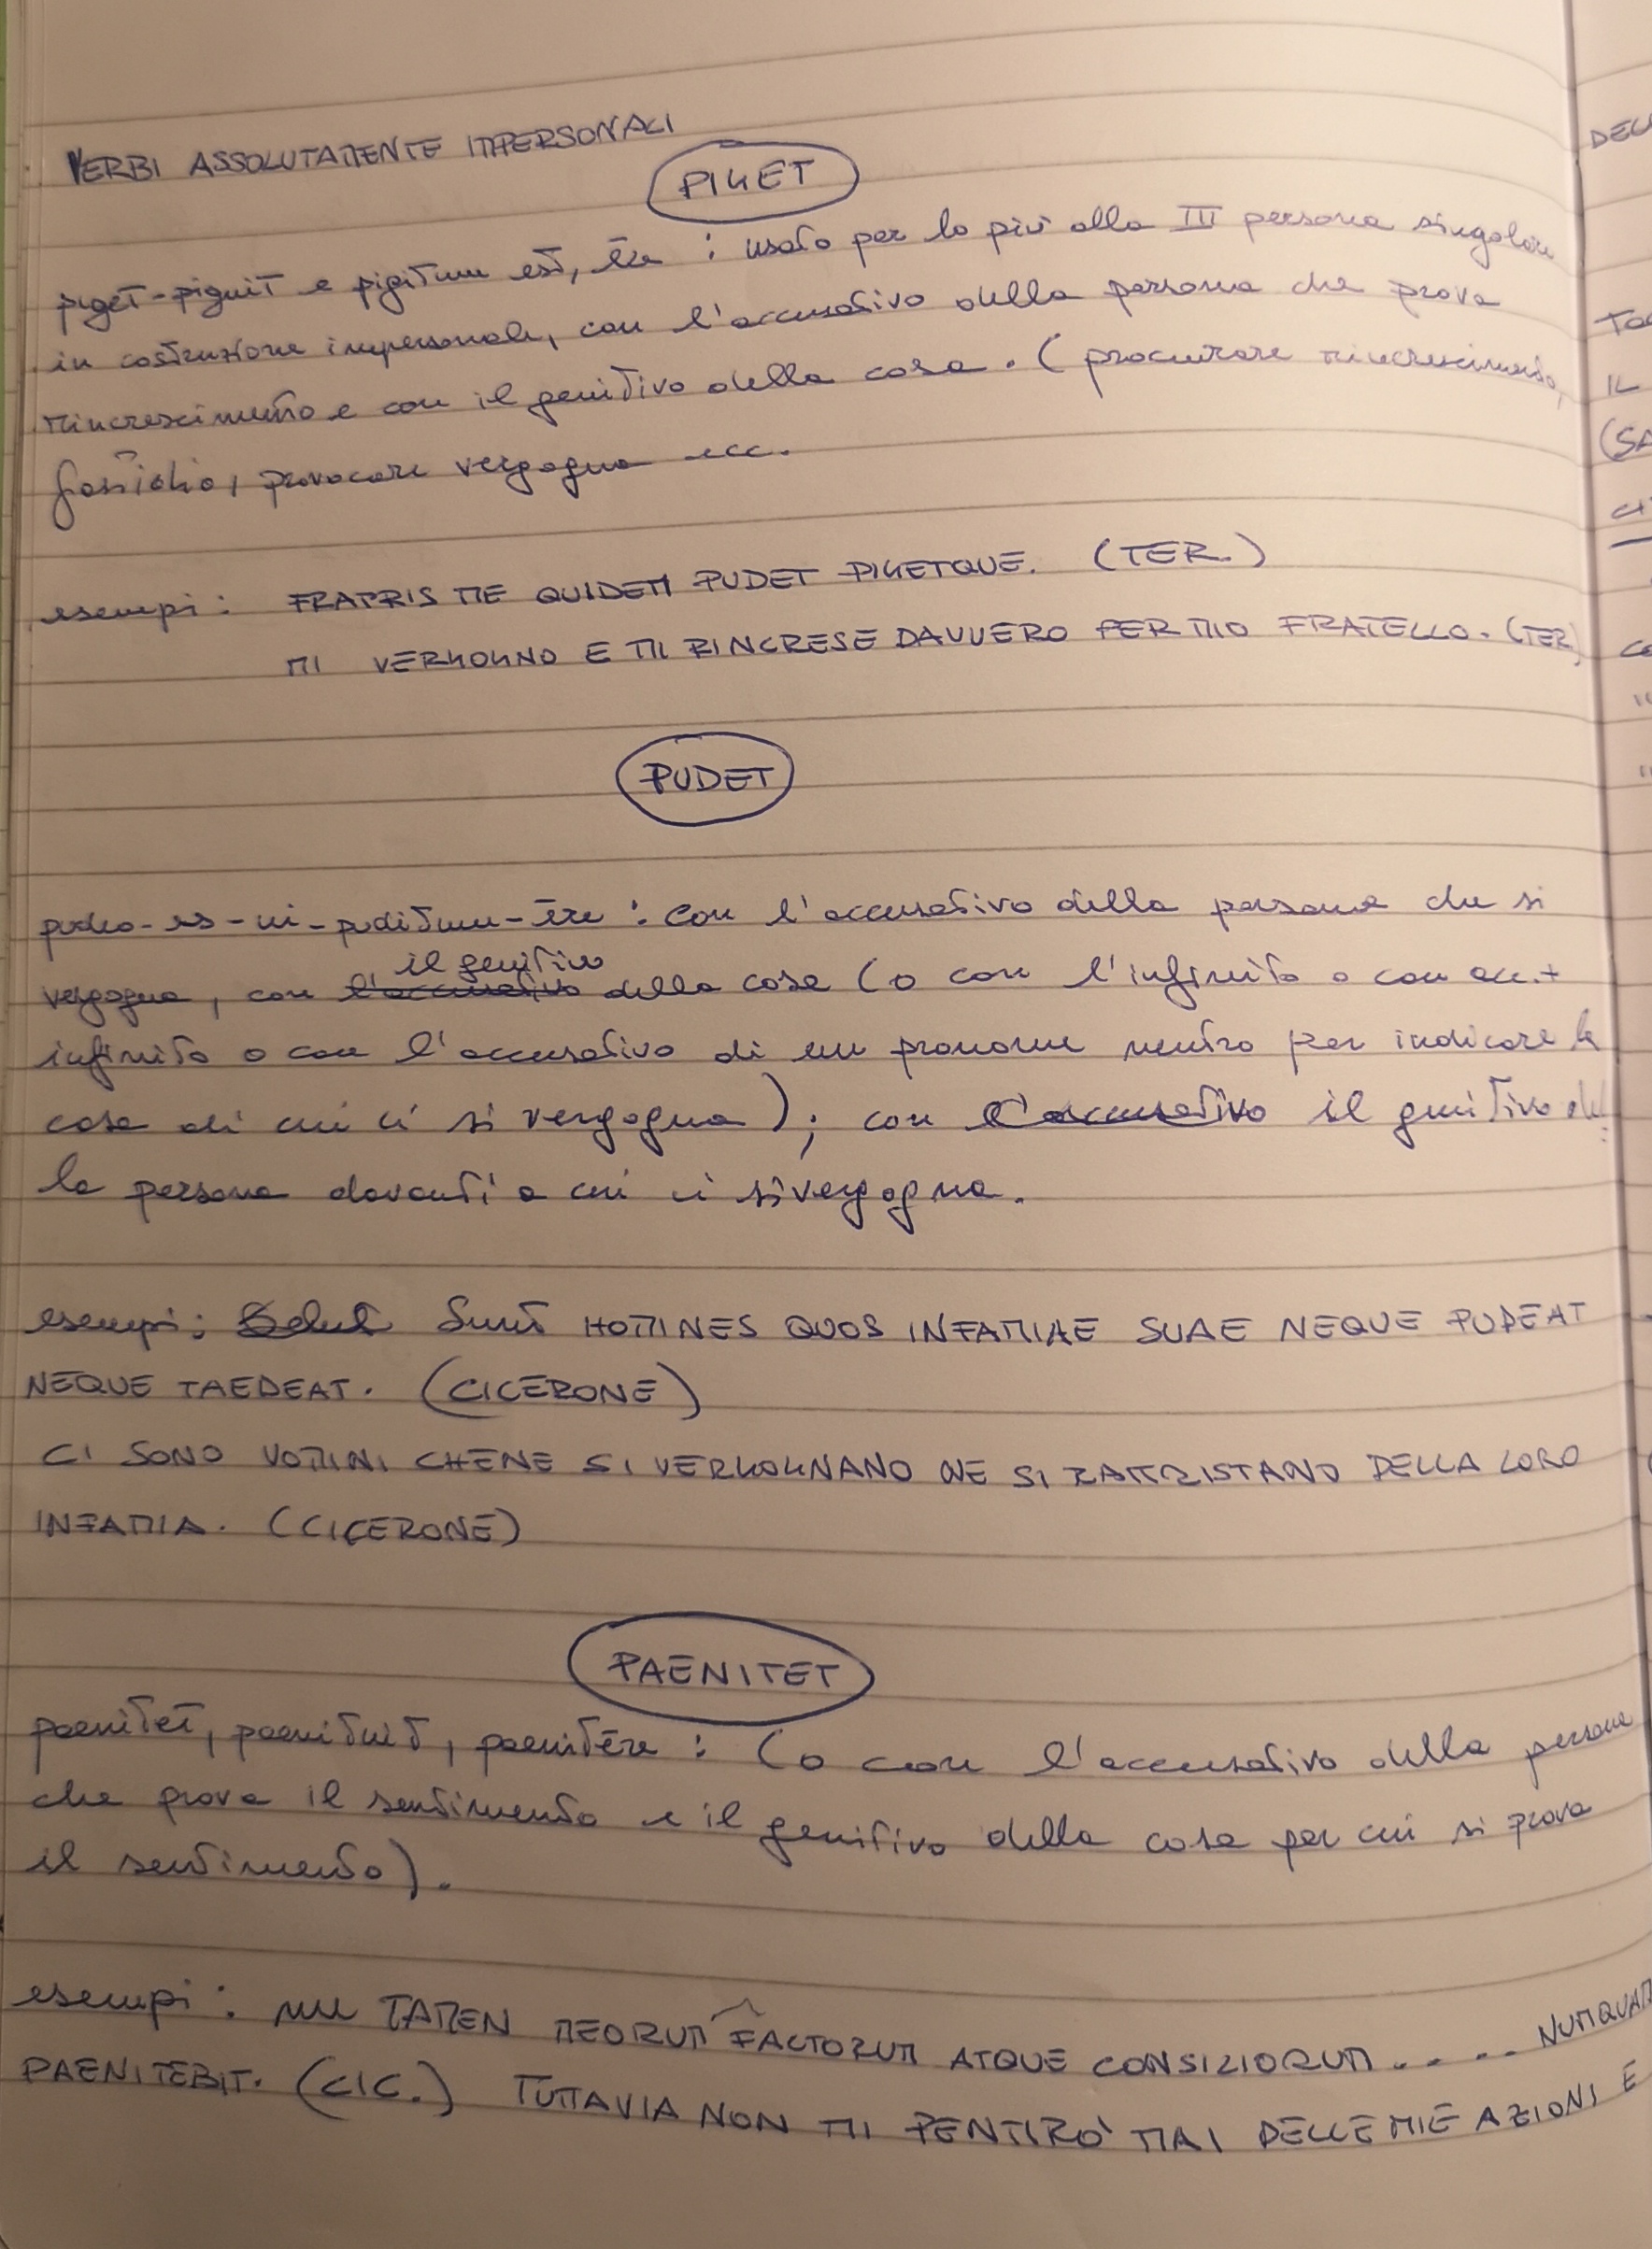 VERBI ASSOLUTAMENTE IMPERSONALI
PIGET
piget-piguit e pigitum est, ēre : usato per lo più alla III persona singolare
in costruzione impersonale, con l'accusativo della persona che prova
rincrescimento e con il genitivo della cosa. (procurare rincrescimento,
fastidio, provocare vergogna ecc.
esempi: FRATRIS ME QUIDEM PUDET PIGETQUE. (TER.)
MI VERGOGNO E MI RINCRESE DAVVERO PER MIO FRATELLO. (TER)
PUDET
pudeo-es-ui-puditum-ēre : con l'accusativo della persona che si
il genitivo
vergogna, con l'accusativo della cosa (o con l'infinito o con acc.+
infinito o con l'accusativo di un pronome neutro per indicare la
cosa di cui ci si vergogna); con l'accusativo il genitivo del
la persona davanti a cui ci si vergogna.
esempi: Sunt HOMINES QUOS INFAMIAE SUAE NEQUE PUDEAT
NEQUE TAEDEAT. (CICERONE)
CI SONO UOMINI CHE NE SI VERGOGNANO NE SI RATTRISTANO DELLA LORO
INFAMIA. (CICERONE)
PAENITET
paenitet, paenituit, paenitēre : (o con l'accusativo della persona
che prova il sentimento e il genitivo della cosa per cui si prova
il sentimento).
esempi: TAMEN MEORUM FACTORUM ATQUE CONSILIORUM..... NUMQUAM
PAENITEBIT. (CIC.) TUTTAVIA NON MI PENTIRÒ MAI DELLE MIE AZIONI E